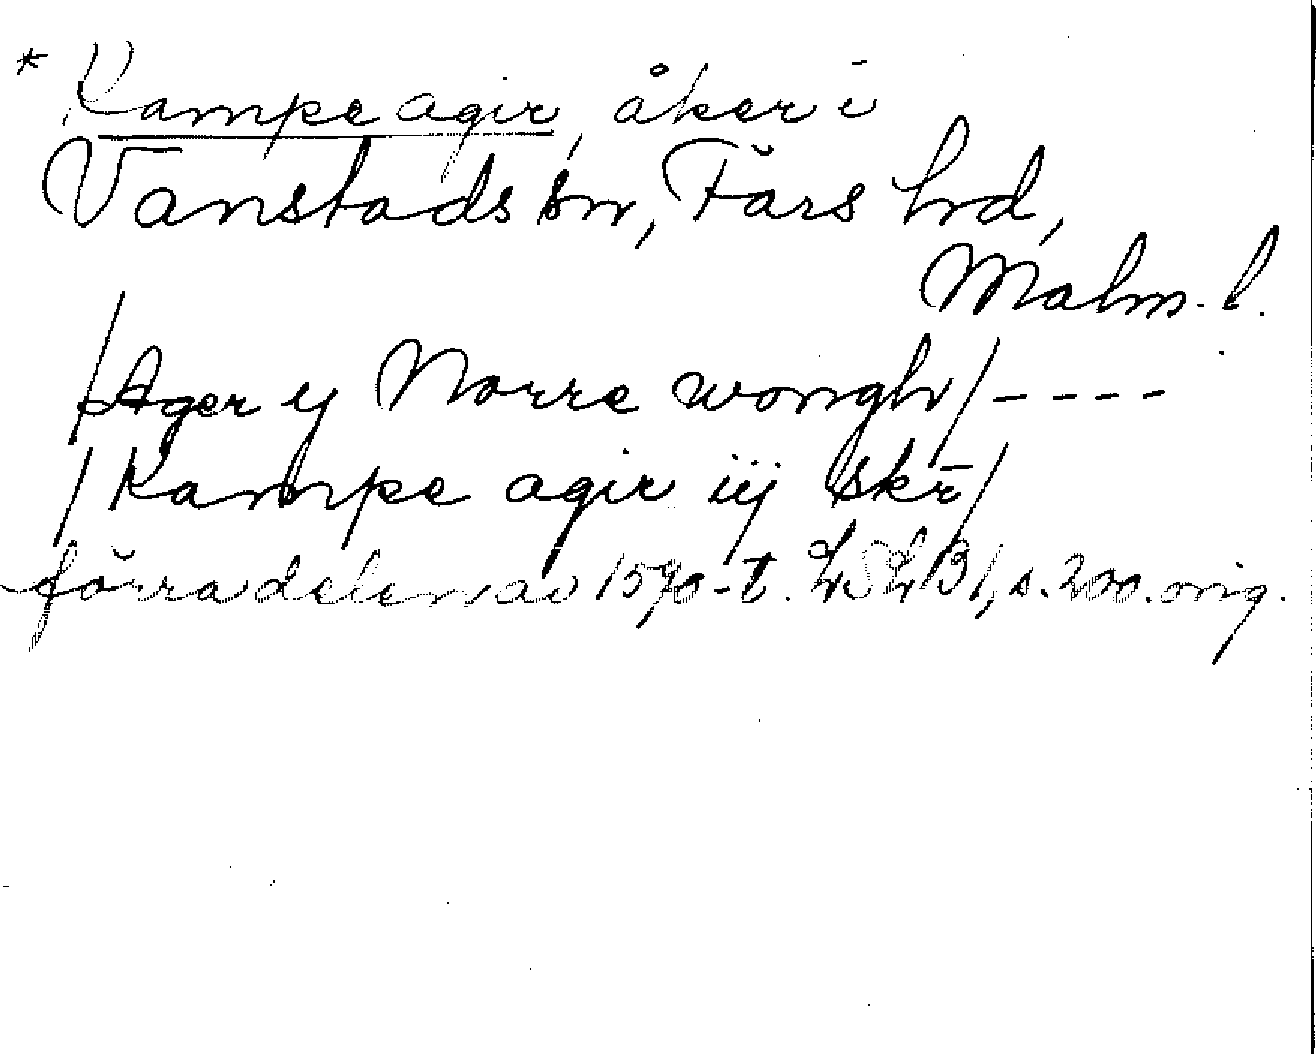 * Kampe agir, åker i
Vanstads sn, Färs hd,
Malm. l.
/Ager y Norre wongh/----
/Kampe agir iij skr̄/
förra delen av 1590-t. LSLB 1, s. 200. orig.